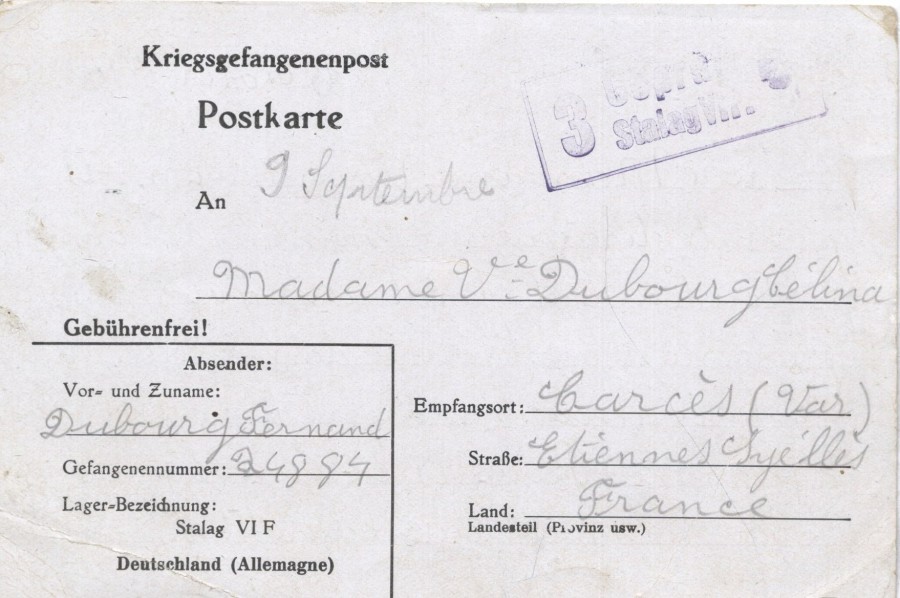 Kriegsgefangenenpost
Postkarte
3 Geprü
Stalag VI
An 9 Septembre
Madame Vᵉ Dubourg Célina
Gebührenfrei!
Absender:
Vor= und Zuname:
Dubourg Fernand
Gefangenennummer: 24884
Lager=Bezeichnung:
Stalag VI F
Deutschland (Allemagne)
Empfangsort: Carcès (Var)
Straße: Etiennes
Land: France
Landesteil (Provinz usw.)